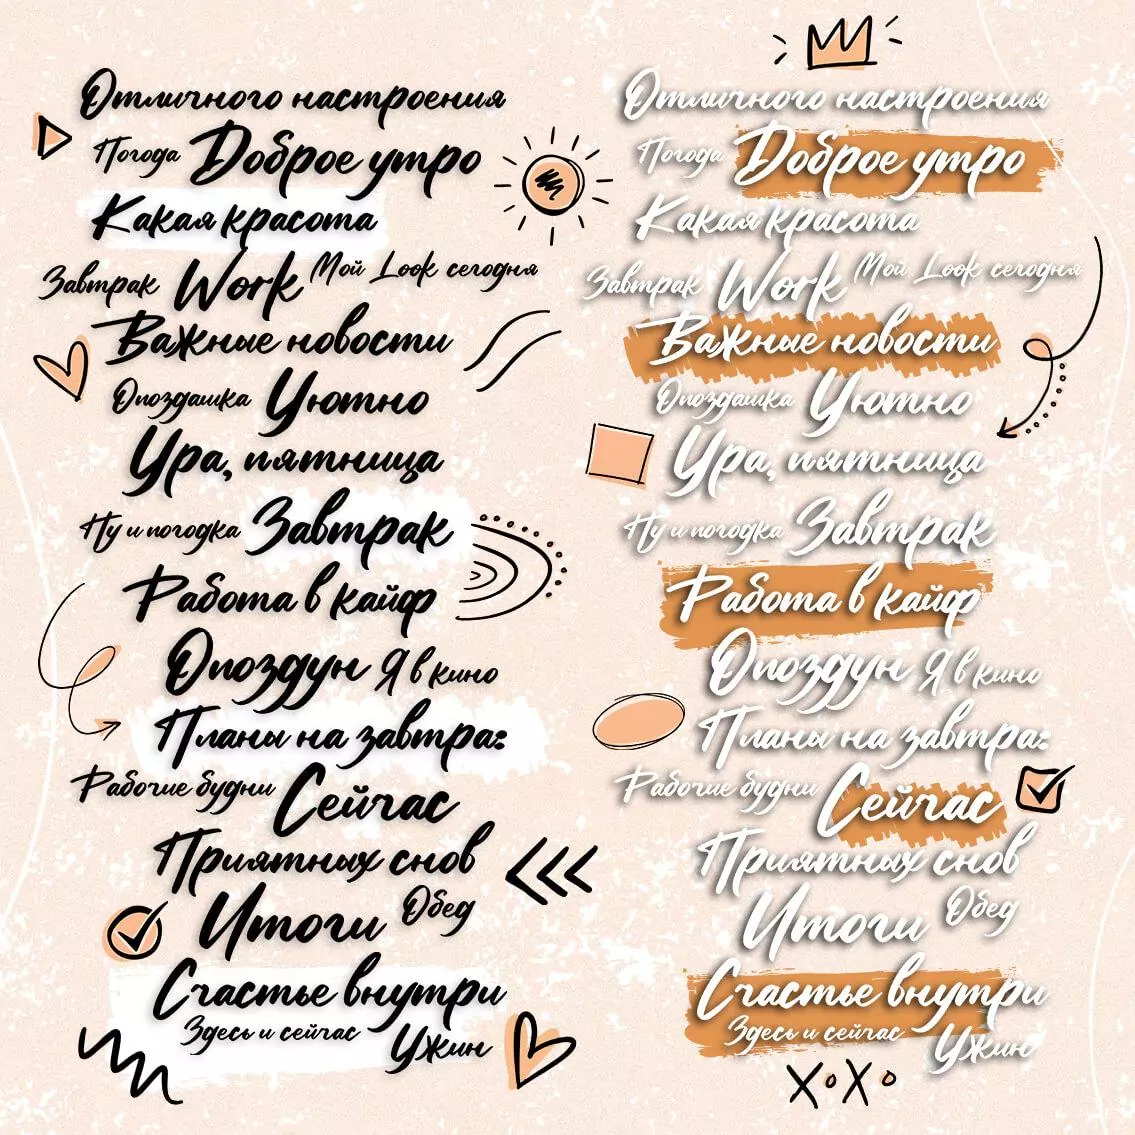 Отличного настроения
Погода Доброе утро
Какая красота
Завтрак Work Мой Look сегодня
Важные новости
Опоздашка Уютно
Ура, пятница
Ну и погодка Завтрак
Работа в кайф
Опоздун Я в кино
Планы на завтра:
Рабочие будни Сейчас
Приятных снов
Итоги Обед
Счастье внутри
Здесь и сейчас Ужин
Отличного настроения
Погода Доброе утро
Какая красота
Завтрак Work Мой Look сегодня
Важные новости
Опоздашка Уютно
Ура, пятница
Ну и погодка Завтрак
Работа в кайф
Опоздун Я в кино
Планы на завтра:
Рабочие будни Сейчас
Приятных снов
Итоги Обед
Счастье внутри
Здесь и сейчас Ужин
XoXo